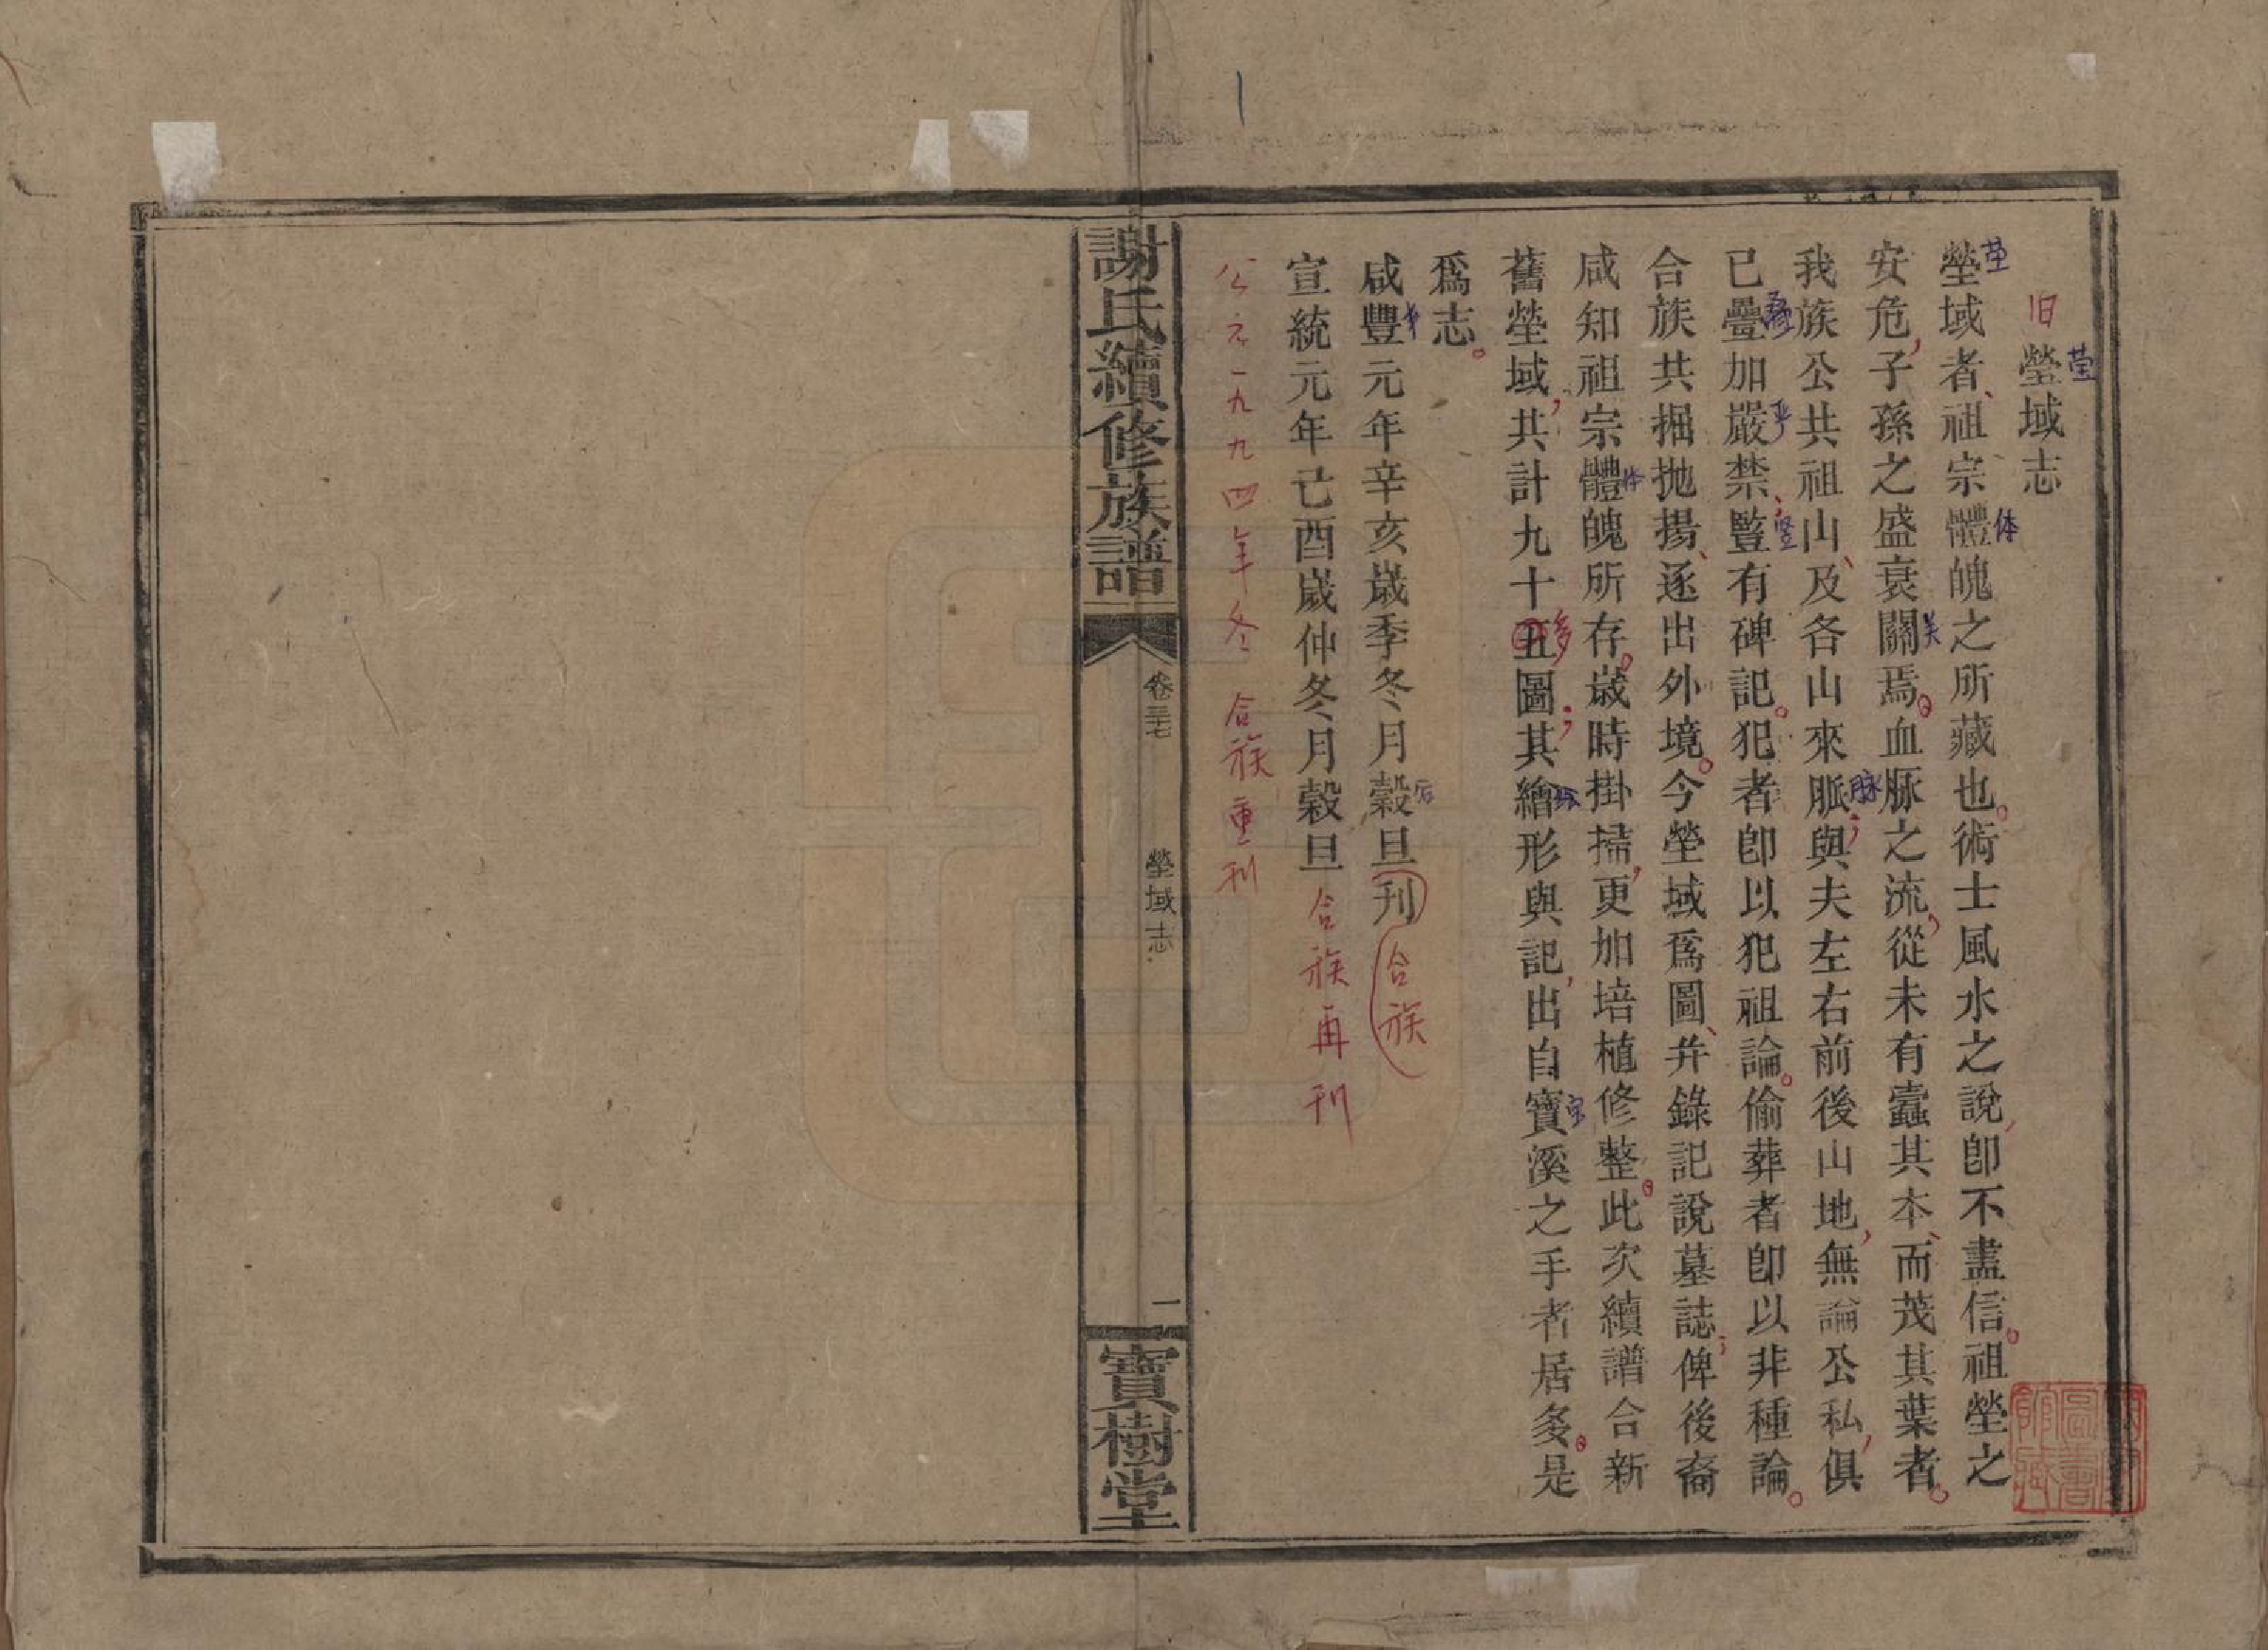 旧塋域志
塋域者祖宗體魄之所藏也術士風水之說卽不盡信祖塋之
安危子孫之盛衰關焉血脉之流從未有蠹其本而茂其葉者
我族公共祖山及各山來脈與夫左右前後山地無論公私俱
已疊加嚴禁豎有碑記犯者卽以犯祖論偷葬者卽以非種論
合族共掘拋揚逐出外境今塋域爲圖并錄記說墓誌俾後裔
咸知祖宗體魄所存歲時掛掃更加培植修整此次續譜合新
舊塋域共計九十五圖其繪形與記出自寶溪之手者居多是
爲志
咸豐元年辛亥歲季冬月穀旦刊合族
宣統元年己酉歲仲冬月穀旦合族再刊
公元一九九四年冬 合族重刊
謝氏續修族譜
卷三七
塋域志
一
寶樹堂